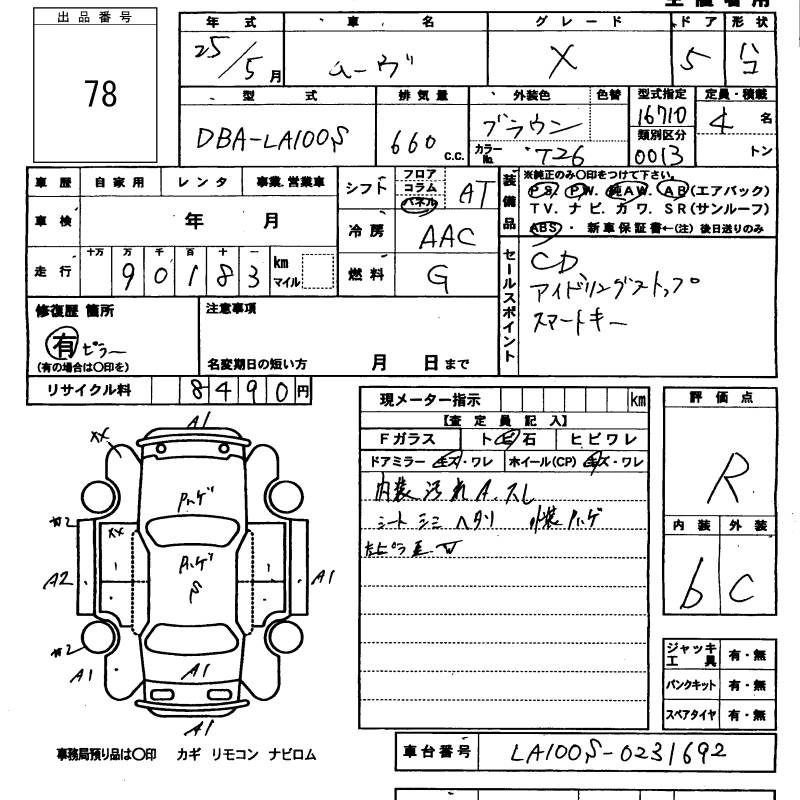 出品番号
78
年式 車名 グレード ドア 形状
25/5月 ムーヴ X 5 ハコ
型式 排気量 外装色 色替 型式指定 定員・積載
DBA-LA100S 660 c.c. ブラウン 16710 4名
カラーNo. T26 類別区分 0013 トン
車歴 自家用 レンタ 事業.営業車
シフト フロア コラム パネル AT
装備品 ※純正のみ〇印をつけて下さい。
PS. PW. 純AW. AB(エアバック)
TV. ナビ. カワ. SR(サンルーフ)
ABS・新車保証書←(注) 後日送りのみ
車検 年 月
冷房 AAC
走行 十万 万 千 百 十 一
90183 km マイル
燃料 G
セールスポイント
CD
アイドリングストップ
スマートキー
修復歴 箇所
有 ピラー
(有の場合は〇印を)
注意事項
名変期日の短い方 月 日まで
リサイクル料 8490円
現メーター指示 km
【査定員記入】
Fガラス ト ビ 石 ヒビワレ
ドアミラー キズ・ワレ ホイール(CP) キズ・ワレ
内装汚れ A.スレ
シート シミ ヘタリ 外装Pハゲ
評価点
R
内装 外装
b C
A1
XX
Pハゲ
XX
Pハゲ
S
A2
A1
A1
A1
A1
ジャッキ工具 有・無
パンクキット 有・無
スペアタイヤ 有・無
事務局預り品は〇印 カギ リモコン ナビロム
車台番号 LA100S-0231692